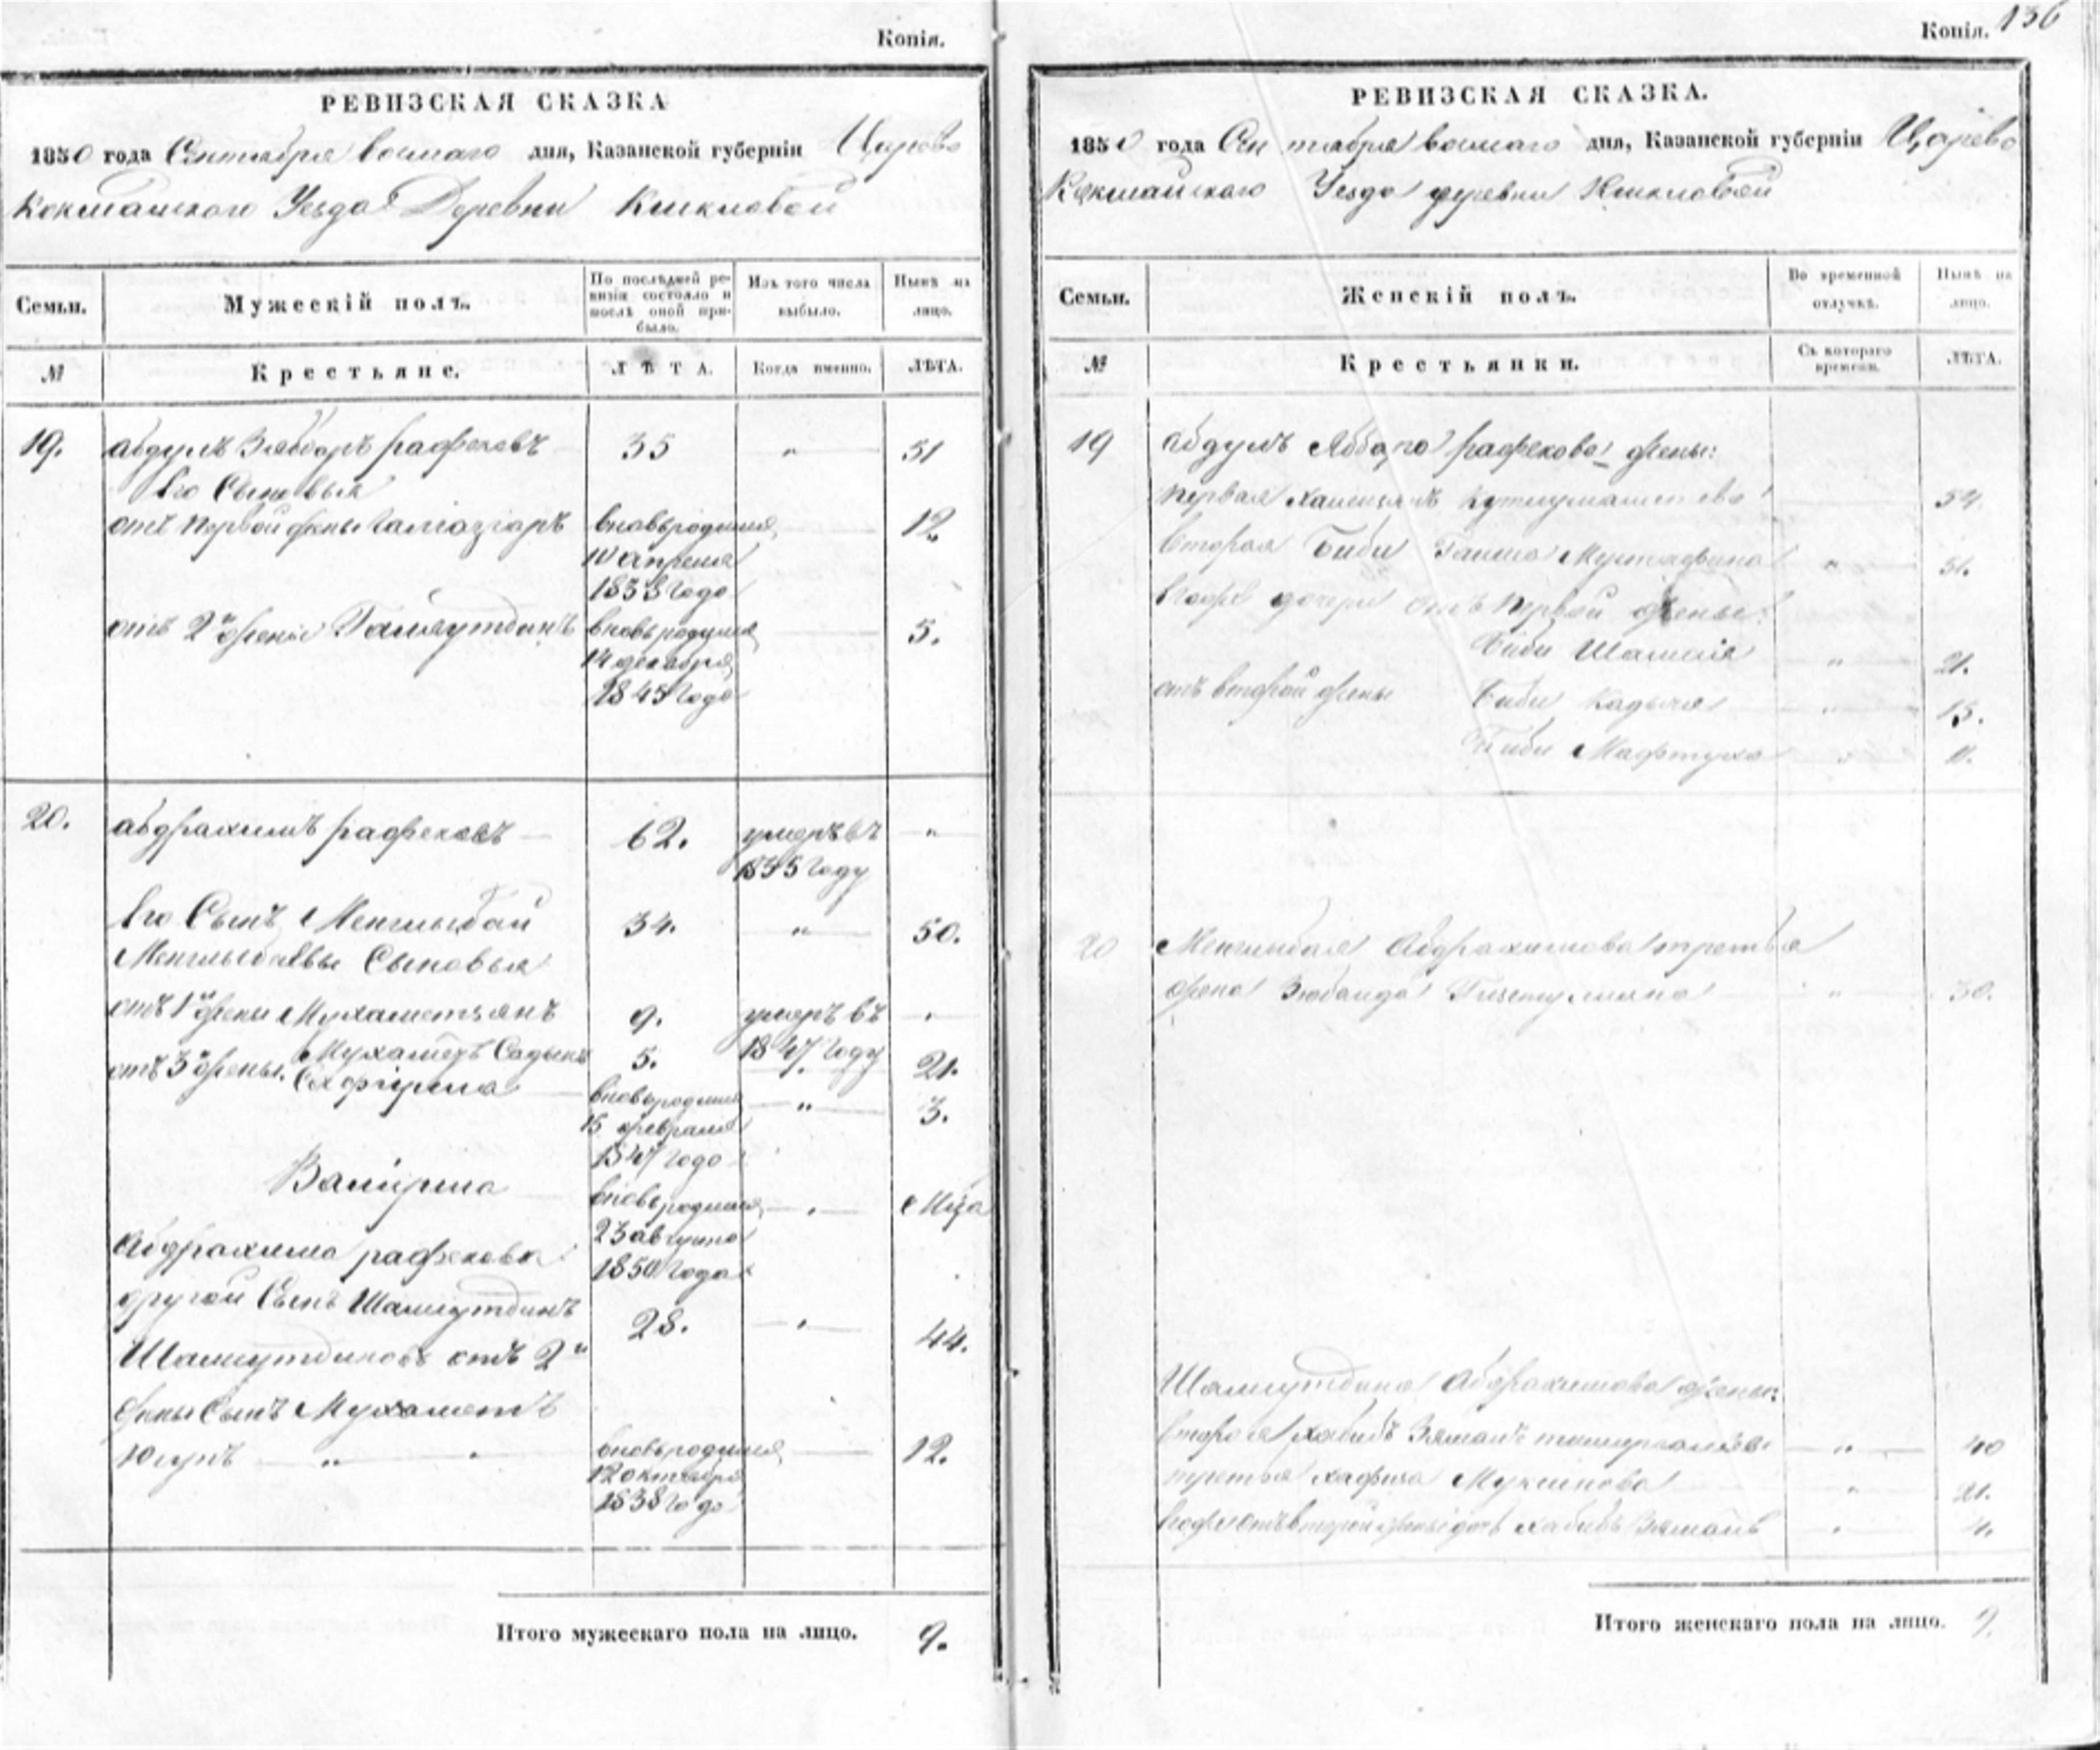 Копія.
РЕВИЗСКАЯ СКАЗКА
1850 года Сентября восмаго дня, Казанской губерніи Царево
Кокшайскаго Уезда Деревни
Семьи.
Мужескій полъ.
По послѣдней ре-
визіи состояло и
послѣ оной при-
было.
Изъ того числа
выбыло.
Нынѣ на
лицо.
№
Крестьяне.
ЛѢТА.
Когда именно.
ЛѢТА.
19.
абдулъ рафековъ
35
"
51
Его Сыновья
отъ первой жены
вновьродился
12.
10 апреля
1838 Года
отъ 2й жены
вновь родился
5.
14 декабря
1845 Года
20.
абдрахимъ рафековъ
62.
умеръ въ
"
1835 Году
Его Сынъ Менглыбай
34.
"
50.
Менглыбаевы Сыновья
отъ 1й жены Мухаметьянъ
9.
умеръ въ
"
1847 Году
отъ 3й жены. Мухаметъ Садыкъ
5.
"
21.
вновьродился
"
3.
15 февраля
1847 Года
вновьродился
"
23 августа
1850 Года
Абдрахима рафекова
другой Сынъ Шамсутдинъ
28.
"
44.
Шамсутдиновъ отъ 2й
жены Сынъ Мухаметъ
Юсупъ " "
вновьродился
12.
12 октября
1838 Года
Итого мужескаго пола на лицо. 9.
Копія. 136
РЕВИЗСКАЯ СКАЗКА.
1850 года Сентября восмаго дня, Казанской губерніи Царево
Кокшайскаго Уезда деревни
Семьи.
Женскій полъ.
Во временной
отлучкѣ.
Нынѣ на
лицо.
№
Крестьянки.
Съ котораго
времени.
ЛѢТА.
19
абдулъ рафекова жены:
первая
54.
Вторая Биби Мустафина
"
51.
Егоже дочери отъ первой жены:
Биби
"
21.
отъ второй жены Биби Кадыча
"
13.
Биби Мафтуха
"
11.
20
Менглыбая Абдрахимова третья
жена
"
30.
Шамсутдина Абдрахимова жены:
вторая
"
40
третья Хафиза Муксинова
"
21.
"
4.
Итого женскаго пола на лицо. 9.